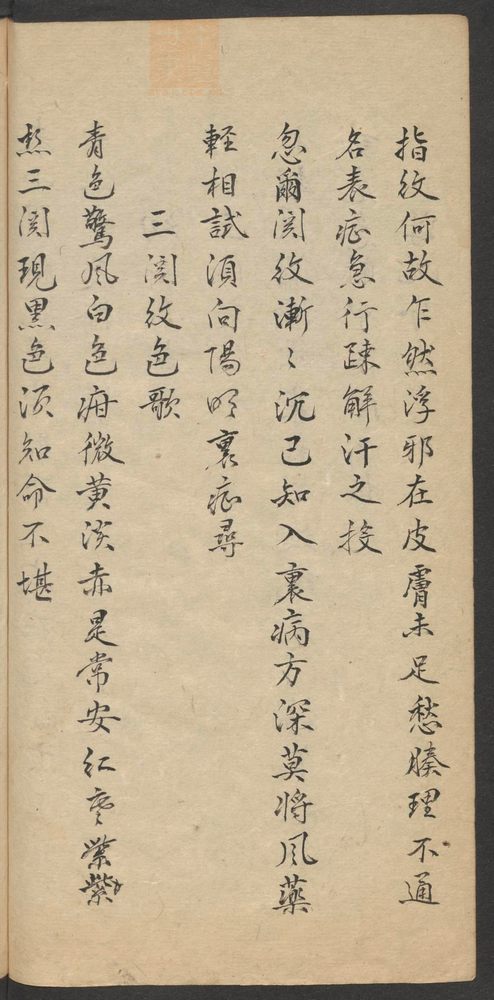 指紋何故乍然浮邪在皮膚未足愁腠理不通
名表症急行疎解汗之投
忽爾関紋漸〻沉已知入裏病方深莫將风藥
輕相試須向陽明裏症尋
三関紋色歌
青色驚风白色疳微黄淡赤是常安紅寒紫
熱三関現黒色須知命不堪